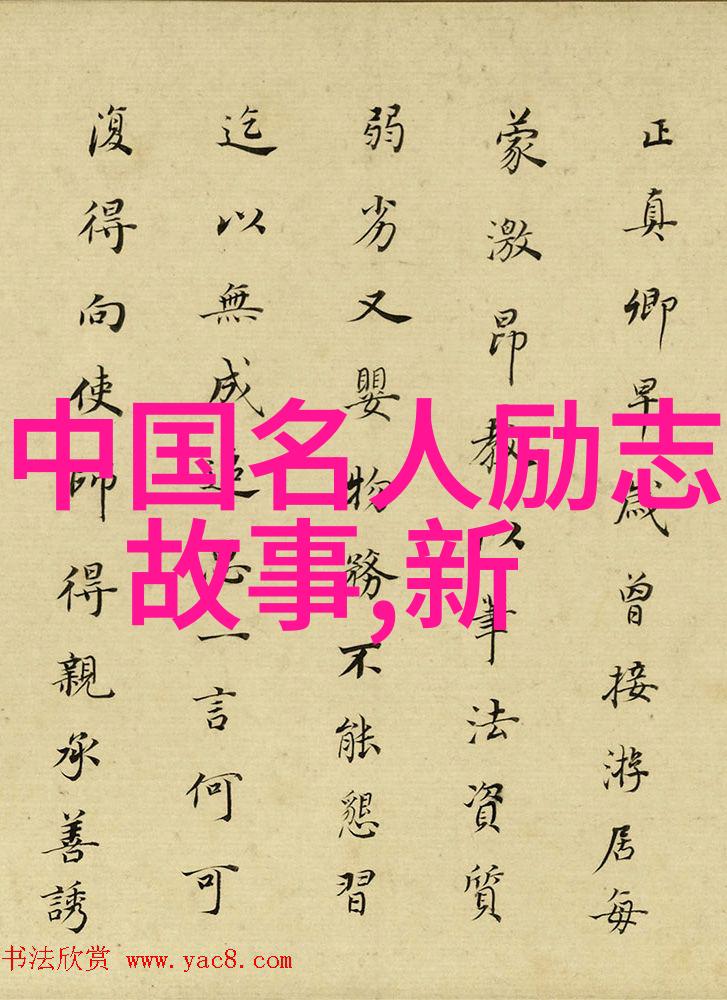 正真卿早歲曾接游居每
蒙激昂教以筆法資質
弱劣又嬰物務不能懇習
迄以無成追思一言何可
復得向使師得親承善誘
中国名人励志
故事,新
书法欣赏 www.yac8.com